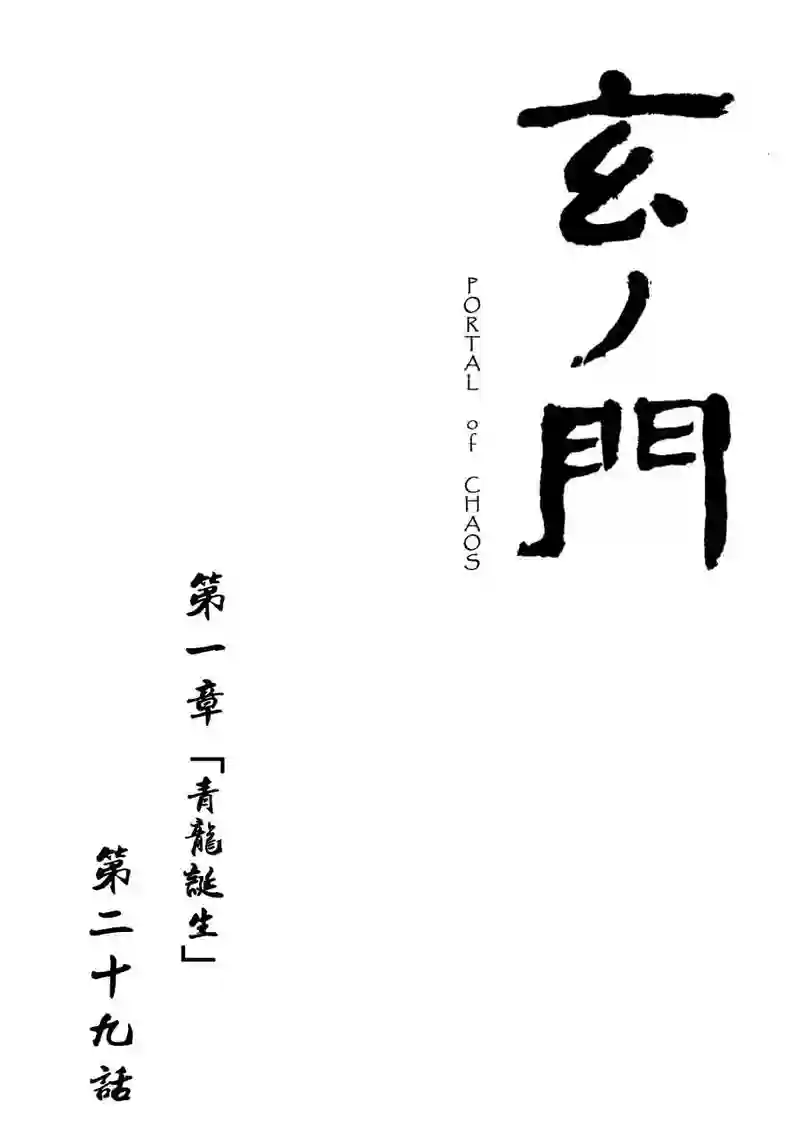 玄ノ門
PORTAL of CHAOS
第一章「青龍誕生」
第二十九話